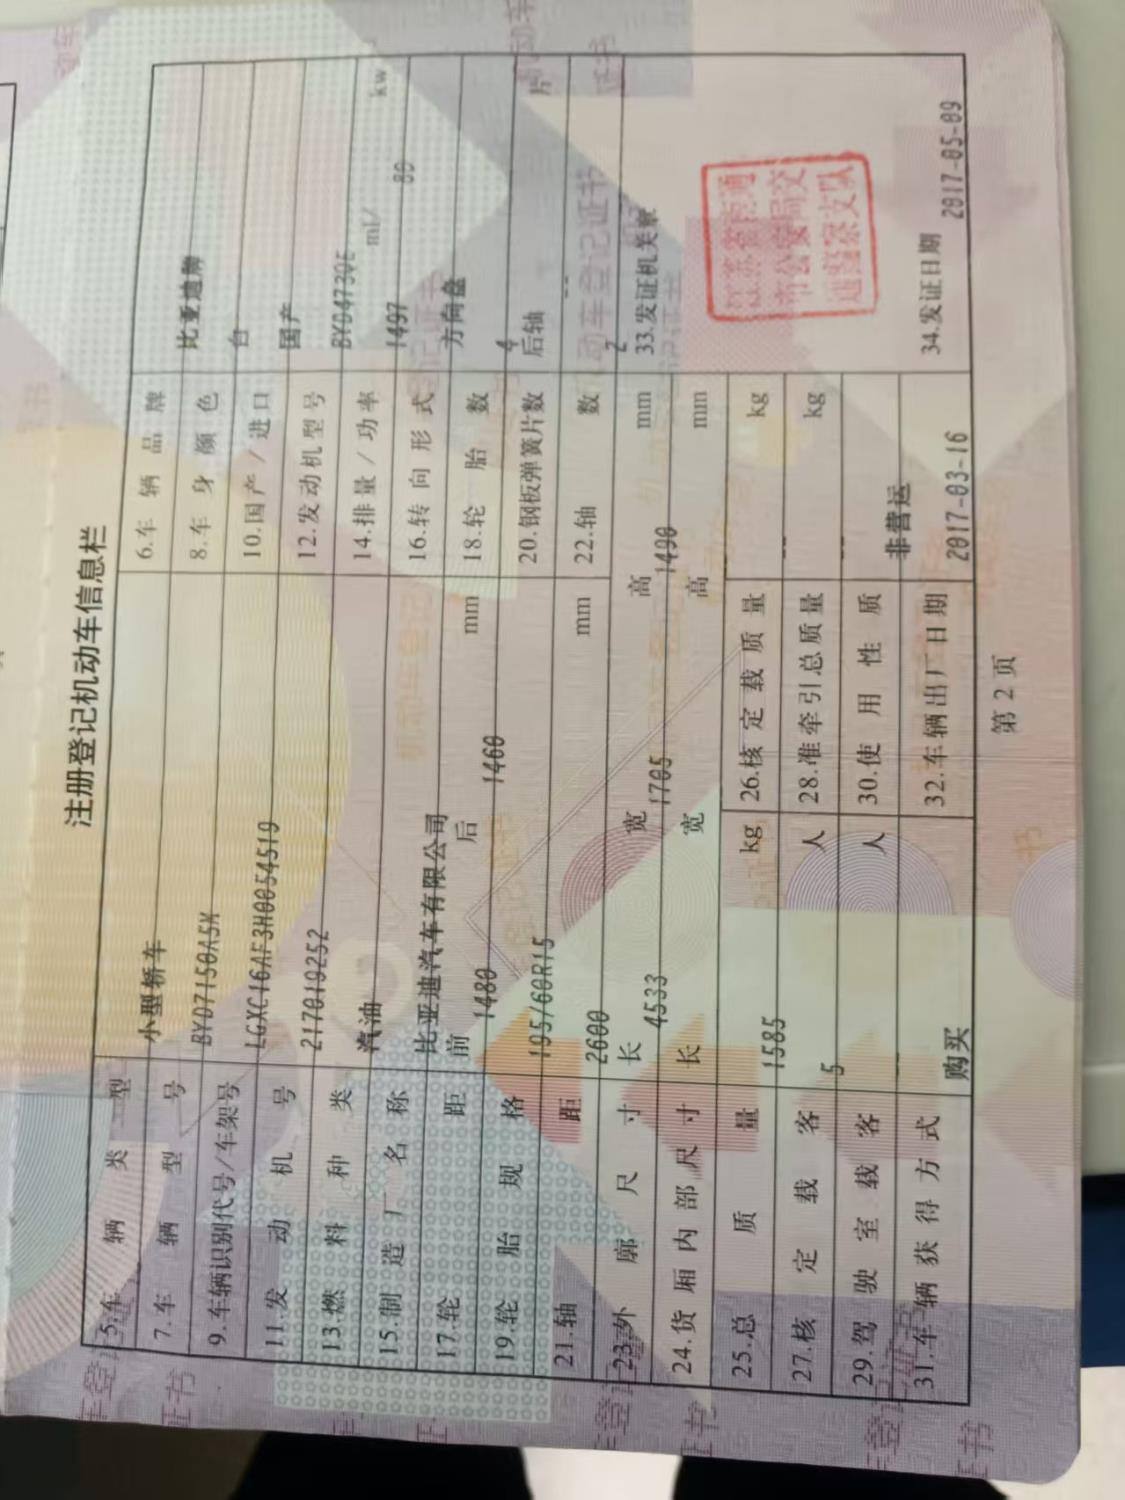 注册登记机动车信息栏
5.车辆类型 小型轿车 6.车辆品牌 比亚迪牌
7.车辆型号 BYD7150A5M 8.车身颜色 白
9.车辆识别代号/车架号 LGXC16AF3H0054519 10.国产/进口 国产
11.发动机号 217019252 12.发动机型号 BYD473QE
13.燃料种类 汽油 14.排量/功率 1497 ml/ 80 kw
15.制造厂名称 比亚迪汽车有限公司 16.转向形式 方向盘
17.轮距 前 1480 后 1460 mm 18.轮胎数 4
19.轮胎规格 195/60R15 20.钢板弹簧片数 后轴 -- 片
21.轴距 2600 mm 22.轴数 2
23.外廓尺寸 长 4533 宽 1705 高 1490 mm 33.发证机关章
24.货厢内部尺寸 长 宽 高 mm
江苏省南通
市公安局交
通警察支队
25.总质量 1585 kg 26.核定载质量 -- kg
27.核定载客 5 人 28.准牵引总质量 -- kg
29.驾驶室载客 -- 人 30.使用性质 非营运
31.车辆获得方式 购买 32.车辆出厂日期 2017-03-16 34.发证日期 2017-05-09
第2页